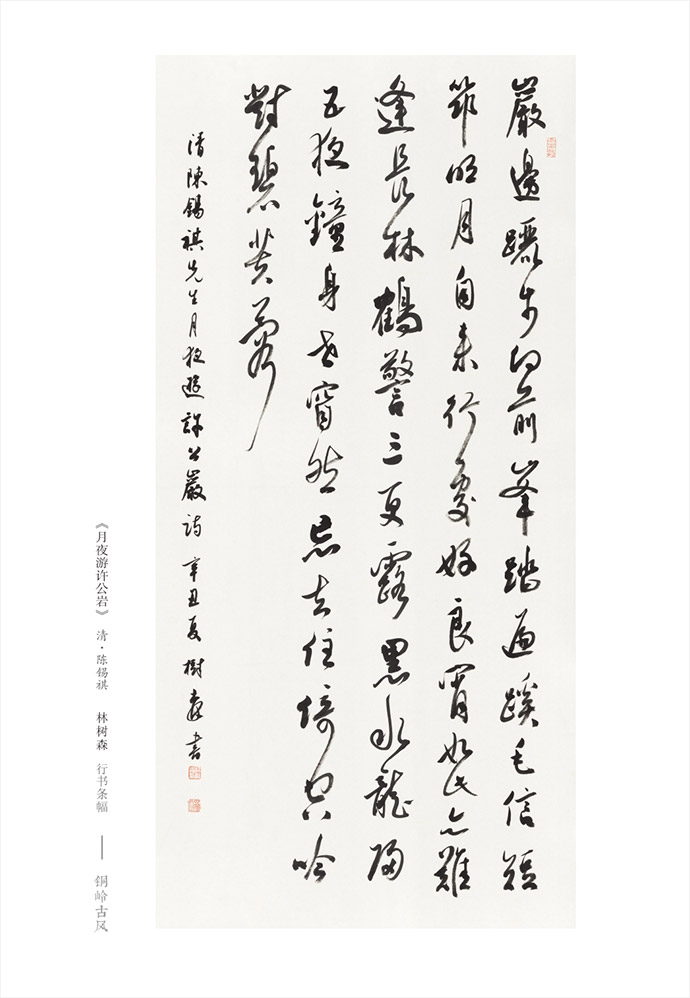 巖邊躧步到前峯踏遍蹊毛信短
筇明月自來行處好良宵如此亦難
逢長林鶴警三更露黑水龍歸
五夜鐘身世窅然忘去住倚空吟
對碧芙蓉
清陳錫祺先生月夜遊許公巖詩 辛丑夏樹森書
《月夜游许公岩》 清·陈锡祺 林树森 行书条幅 —— 铜岭古风